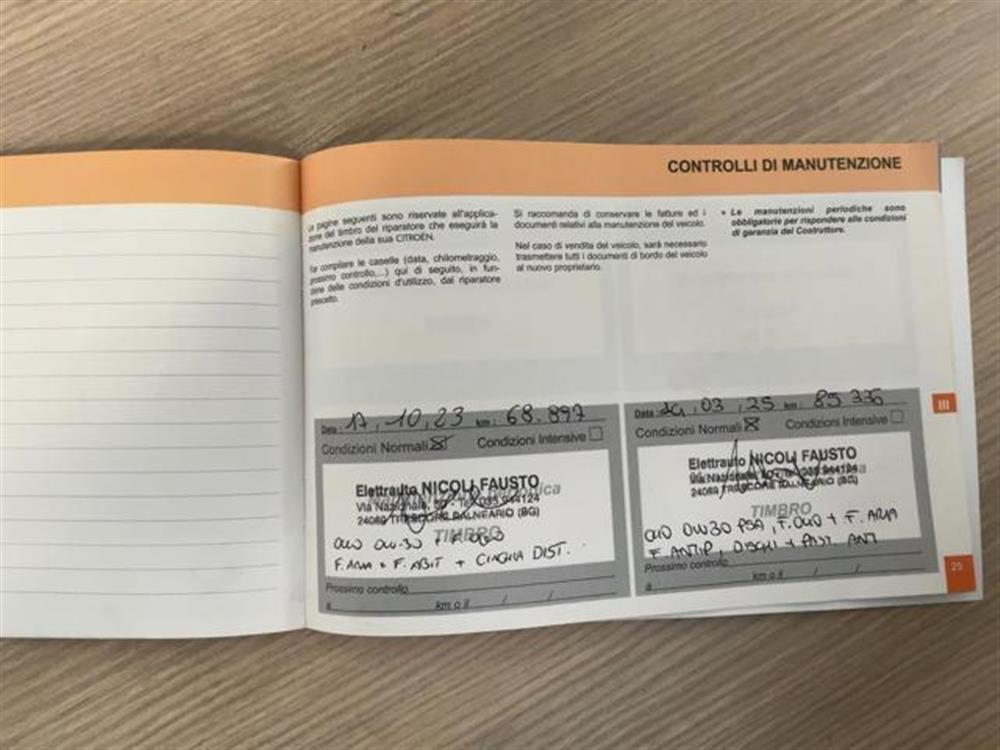 CONTROLLI DI MANUTENZIONE
Le pagine seguenti sono riservate all'applica-
zione del timbro del riparatore che eseguirà la
manutenzione della sua CITROËN.
Far compilare le caselle (data, chilometraggio,
prossimo controllo,...) qui di seguito, in fun-
zione delle condizioni d'utilizzo, dal riparatore
prescelto.
Si raccomanda di conservare le fatture ed i
documenti relativi alla manutenzione del veicolo.
Nel caso di vendita del veicolo, sarà necessario
trasmettere tutti i documenti di bordo del veicolo
al nuovo proprietario.
• Le manutenzioni periodiche sono
obbligatorie per rispondere alle condizioni
di garanzia del Costruttore.
Data: 17, 10, 23 km: 68.897
Condizioni Normali Condizioni Intensive
Elettrauto NICOLI FAUSTO
Via Nazionale, - Tel. 035.944124
24069 TRESCORE BALNEARIO (BG)
TIMBRO
OLIO 0W-30 + F. OLIO
F. ARIA + F. ABIT + CINGHIA DIST.
Prossimo controllo
a km o il / /
Data: 03, 25 km: 85.335
Condizioni Normali Condizioni Intensive
Elettrauto NICOLI FAUSTO
Via Nazionale, - Tel. 035.944124
24069 TRESCORE BALNEARIO (BG)
TIMBRO
OLIO 0W30 PSA, F. OLIO + F. ARIA
F. ANTIP, DISCHI + PAST. ANT
Prossimo controllo
a km o il / /
III
25